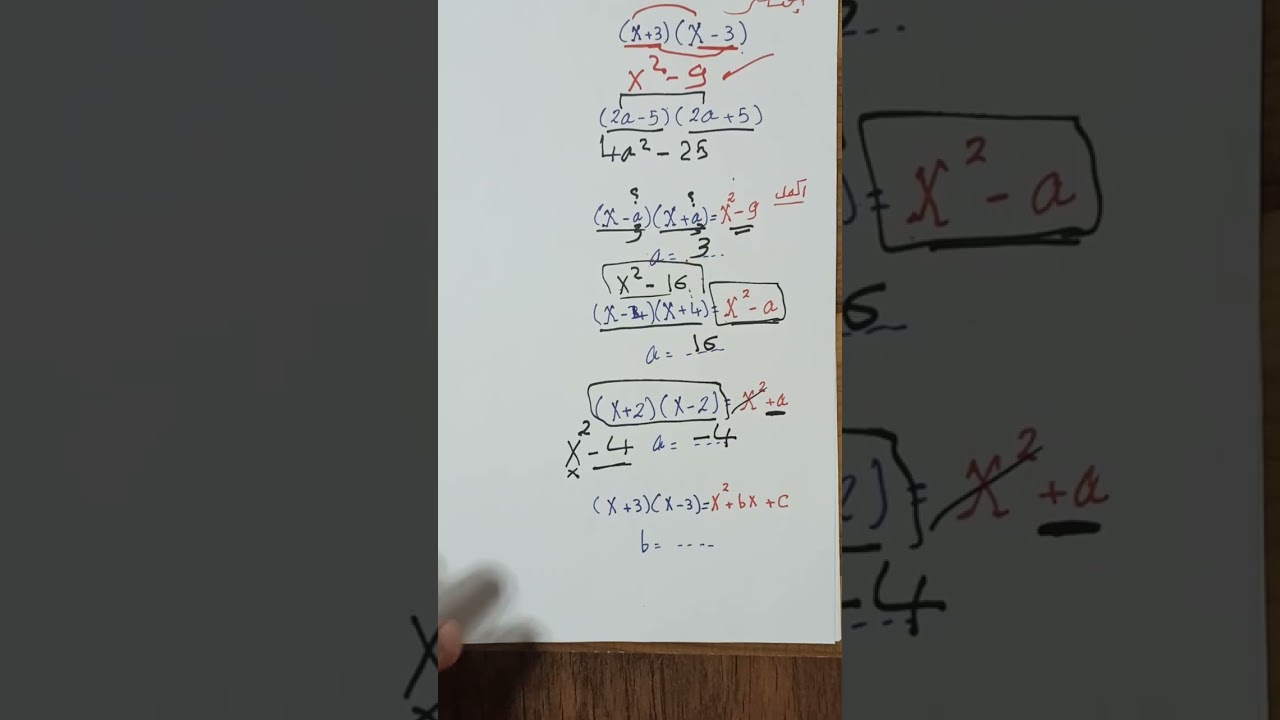 (x+3)(x-3)
x²-9 ✓
(2a-5)(2a+5)
4a²-25
? ?
(x-a)(x+a)=x²-9 أكمل
3 3
a= 3
x²-16
(x-4)(x+4)=x²-a
a= 16
(x+2)(x-2)=x²+a
x²-4 a= -4
(x+3)(x-3)=x²+bx+c
b= ----